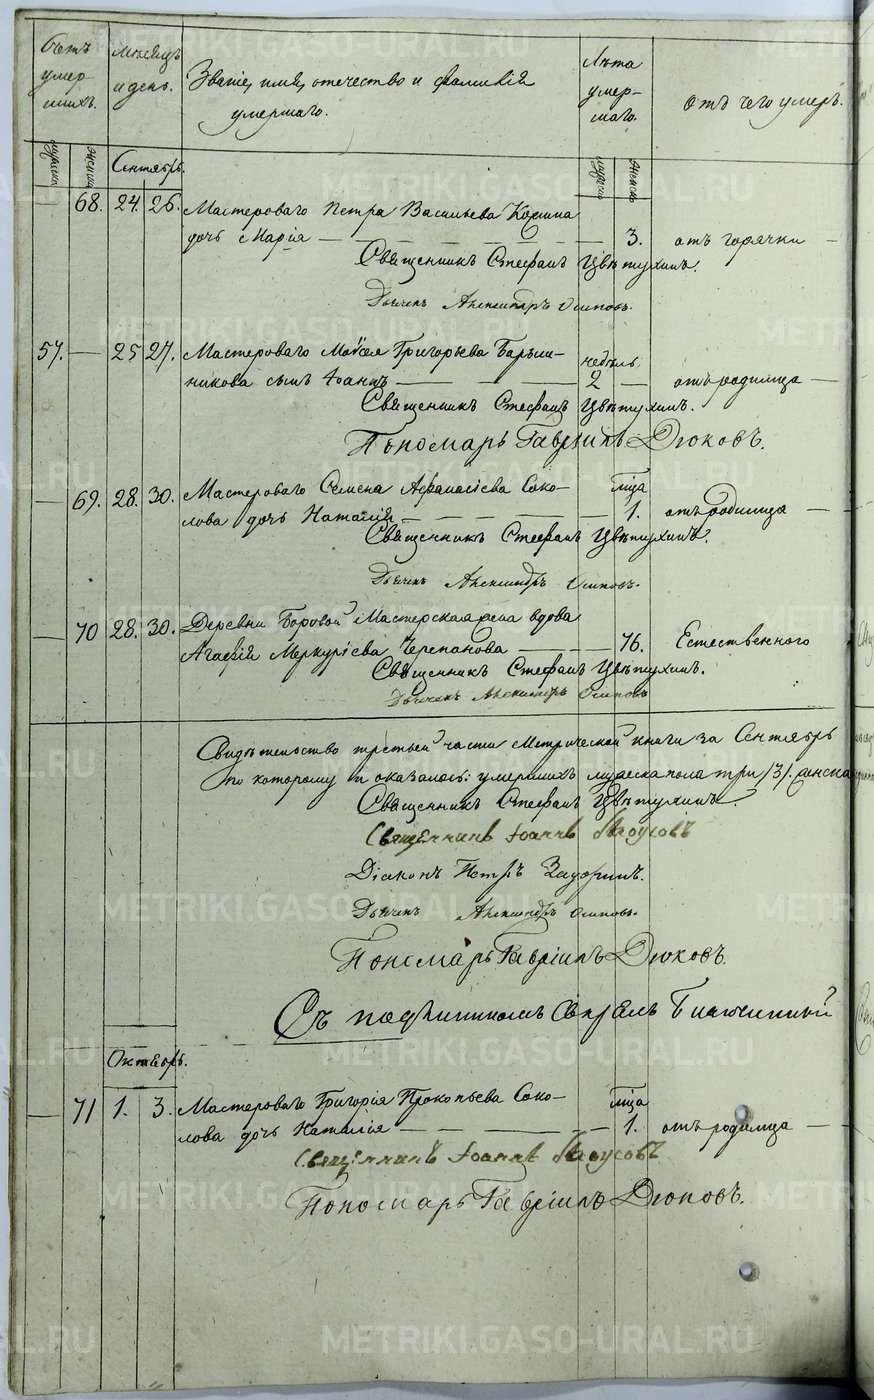 Счетъ умер- шихъ.
Мѣсяцъ и день.
Званіе, имя, отечество и фамилія умершаго.
Лѣта умер- шаго.
Отъ чего умеръ.
мужеска
женска
Сентябрь.
мужеска
женска
68. 24. 26. Мастероваго Петра Васильева
дочь Марія — 3. отъ горячки —
Священникъ Стефанъ Цвѣтухинъ.
Дьячекъ Александръ Осиповъ.
57. — 25 27. Мастероваго Моѵсея Григорьева Барыш- недѣль
никова сынъ Іоаннъ — 2 — отъ родимца —
Священникъ Стефанъ Цвѣтухинъ.
Пономарь Гавріилъ Дюковъ.
— 69. 28. 30. Мастероваго Семена Афанасіева Соко- мца
лова дочь Наталія — 1. отъ родимца —
Священникъ Стефанъ Цвѣтухинъ.
Дьячекъ Александръ Осиповъ.
— 70 28. 30. Деревни Боровой Мастерская вдова
Агафія Меркуріева Черепанова — 76. Естественного
Священникъ Стефанъ Цвѣтухинъ.
Дьячекъ Александръ Осиповъ
Свидѣтельство третьей части Метрической книги за Сентябрь
по которому и оказалось: умершихъ мужеска пола три /3/. женска
Священникъ Стефанъ Цвѣтухинъ
Священникъ Іоаннъ
Діаконъ Петръ
Дьячекъ Александръ Осиповъ.
Пономарь Гавріилъ Дюковъ.
Съ подлиннымъ
Октябрь.
— 71 1. 3. Мастероваго Григорія Прокопьева Соко- мца
лова дочь Наталія — 1. отъ родимца —
Священникъ Іоаннъ
Пономарь Гавріилъ Дюковъ.
METRIKI.GASO-URAL.RU